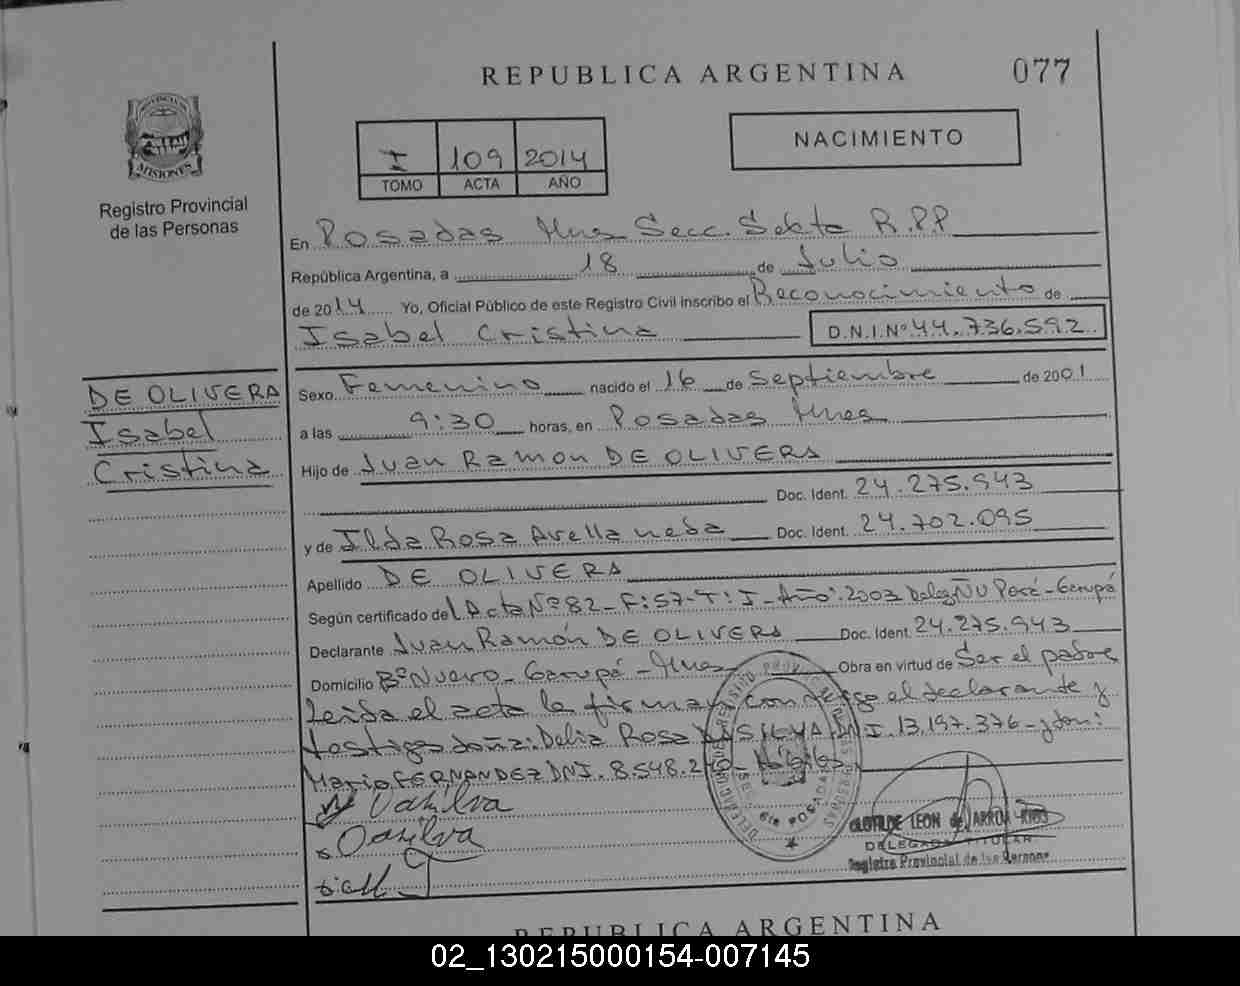 REPUBLICA ARGENTINA
077
PROVINCIA DE
MISIONES
Registro Provincial
de las Personas
I 109 2014
TOMO ACTA AÑO
NACIMIENTO
En Posadas Mnes Secc. Sexta R.P.P
República Argentina, a 18 de Julio
de 2014 Yo, Oficial Público de este Registro Civil inscribo el Reconocimiento de
Isabel Cristina D.N.I.Nº 44.736.592
DE OLIVERA
Isabel
Cristina
Sexo Femenino nacido el 16 de Septiembre de 2001
a las 9:30 horas, en Posadas Mnes
Hijo de Juan Ramon DE OLIVERA
Doc. Ident. 24.275.943
y de Ilda Rosa Avellaneda Doc. Ident. 24.702.095
Apellido DE OLIVERA
Según certificado del Acta Nº 82-F:57-T:I-Año:2003 Deleg Ñu Porá-Garupá
Declarante Juan Ramón DE OLIVERA Doc. Ident. 24.275.943
Domicilio Bº Nuevo-Garupá-Mnes Obra en virtud de Ser el padre
Leida el acta la firman conmigo el declarante y
testigos doña: Delia Rosa DA SILVA DNI.13.197.376-y don:
Mario FERNANDEZ DNI. 8.548.240- Hábiles
Dasilva
CLOTILDE LEON de ARROA RIOS
DELEGADA TITULAR
Registro Provincial de las Personas
REPUBLICA ARGENTINA
02_130215000154-007145